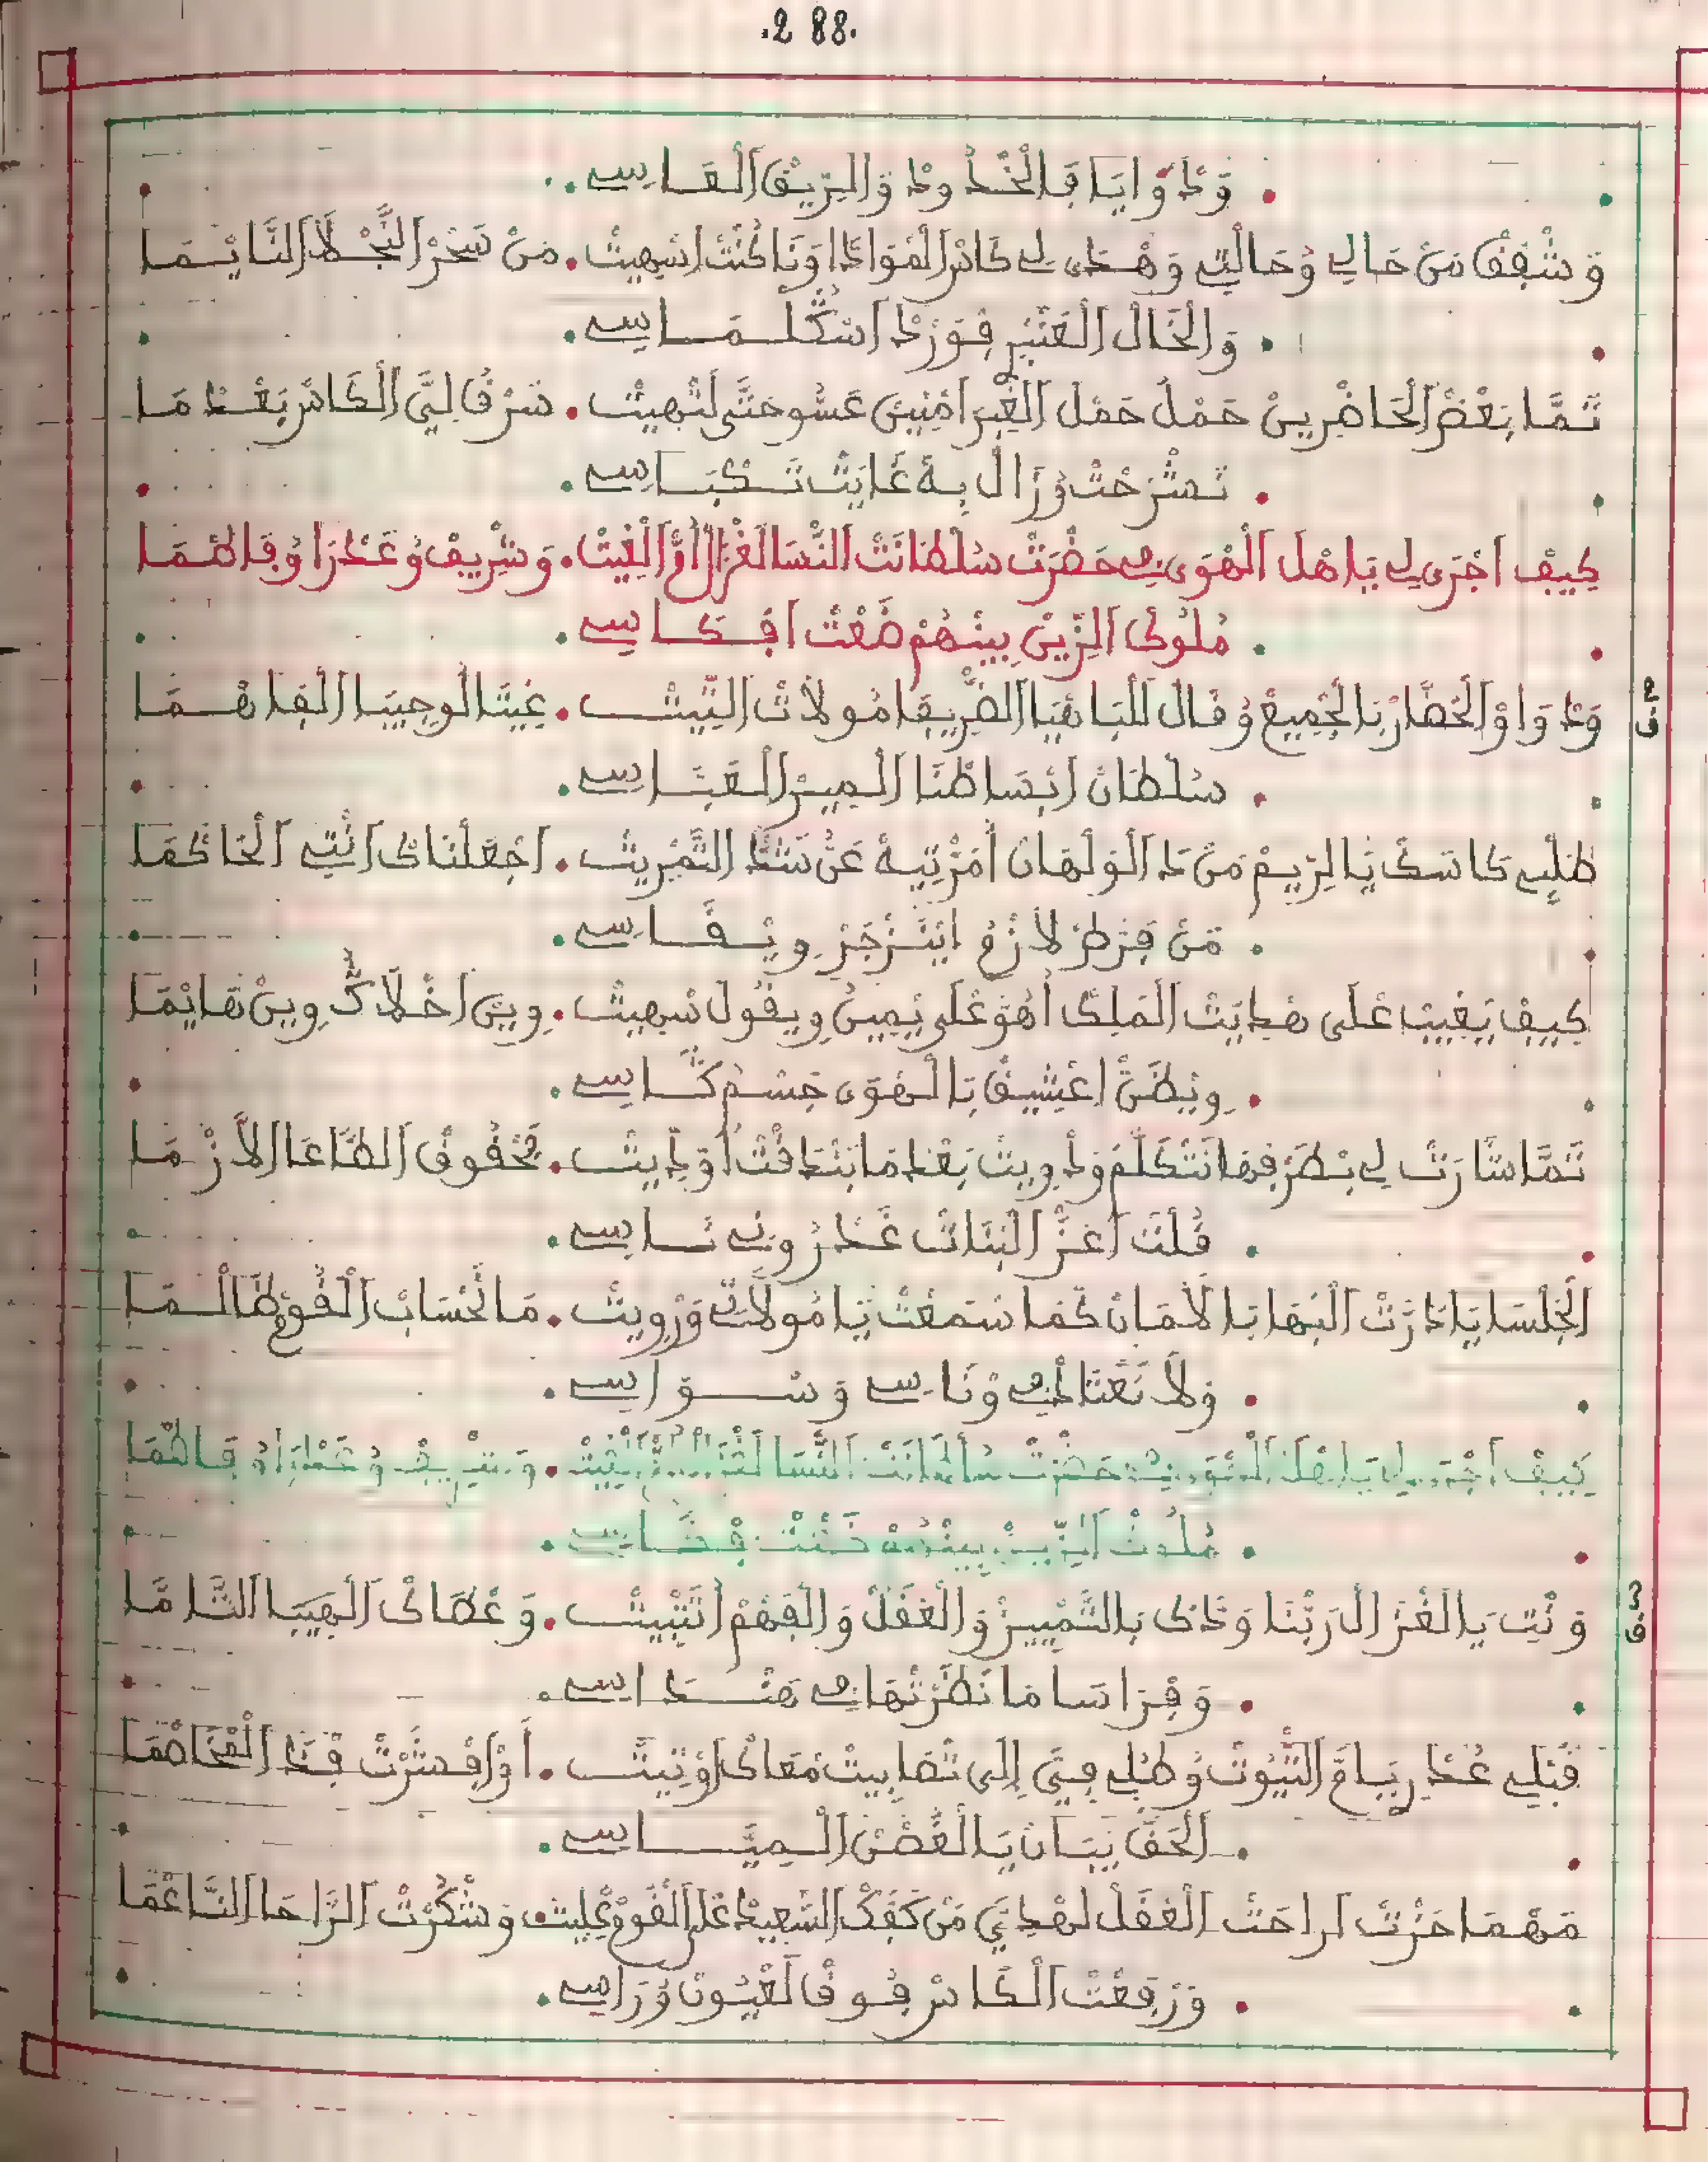 .2 88.
. وَدْوَايَا فَالْخْدُودْ وَالرِّيقْ الْقَاسِي .
وَشْفِقْ مَنْ حَالِي وُحَالْتِي وَهْدَى لِي كَاسْ الْمْوَادَّا وَنَا كُنْتْ اسْهِيتْ . مَنْ سَحْرْ النَّجْلَا النَّايْمَا
. وَالْخَالْ الْعَنْبَرِ فَوَرْدْ اسْكُلْمَاسِي .
تَمَّا بَعْضْ الْحَاضْرِينْ حَمْلْ حَمْلْ الْغِيرْ امْنِينْ عَسُّو حَتَّى لَتْهِيتْ . سَرْقُ لِيَّ الْكَاسْ بَعْدْ مَا
. تَمْشْرَحْتْ وُزَالْ بِهْ غَايَتْ تَكْبَاسِي .
كِيفْ اجْرَى لِي يَا هْلْ الْهْوَى فِي حَضْرَتْ سُلْطَانَتْ النّْسَا لَغْزَالْ امّْ الْغِيتْ . وَشْرِيفْ وُعَدْرَا وُفَاطْمَا
. مُلُوكْ الزِّينْ بِينْهُمْ ضَعْتْ افْكَاسِي .
ق 2
وَدْوَاوْ الْحُضَّارْ بَالْجْمِيعْ وُقَالْ الْبَاهْيَا الضّْرِيفَا مُولَاتْ التِّيتْ . غِيتَا لُوجِيبَا الْفَاهْمَا
. سُلْطَانْ ابْسَاطْنَا الْمِيرْ الْعَبَّاسِي .
طَلْبِي كَاسَكْ يَا الرِّيمْ مَنْ دْ الْوَلْهَانْ امَرْتِيهْ عَنْ شَدَّا التَّمْرِيتْ . اجْعَلْنَاكْ انْتِي الْحَاكْمَا
. مَنْ فَرْطْ لَازْمُ ايَنْزْجَرْ وِيْقَاسِي .
كِيفْ يَغْيَبْ عْلَى هْدَايَتْ الْمَلِكْ اهُوَ عْلَى يْمِينُ وِيقُولْ سْهِيتْ . وِينْ اخْلَاكْ وِينْ هَايْمَا
. وِيْظَنّْ اعْشِيقْ بَا الْهْوَى جَسْمُ كَاسِي .
تَمَّا شَارَتْ لِي بْطَرْفهَا نَتْكَلَّمْ وَدْوِيتْ بَعْدْ مَا بْتْدَقْتْ اوَدِّيتْ . بَحْقُوقْ الطَّاعَا الْلَازْمَا
. قُلْتْ اعَزّْ الْبْنَاتْ غَدْرُونِي نَاسِي .
الْجْلْسَا يَا دَارَتْ الْبْهَا بَا لَامَانْ كْمَا سْمَعْتْ يَا مُولَاتِي وَرْوِيتْ . مَا نْحْسَابْ الْقُومْ ظَالْمَا
. وَلَا نَعْتَادْ فِي وْنَاسِي وَسْوَاسِي .
كِيفْ اجْرَى لِي يَا هْلْ الْهْوَى فِي حَضْرَتْ سُلْطَانَتْ النّْسَا لَغْزَالْ امّْ الْغِيتْ . وَشْرِيفْ وُعَدْرَا وُفَاطْمَا
. مُلُوكْ الزِّينْ بِينْهُمْ ضَعْتْ افْكَاسِي .
ق 3
وَنْتِ يَا الْغْزَالْ رَبّْنَا وَدَّكْ بَالتَّمْيِيزْ وَالْعَقْلْ وَالْفْهَمْ اتَّبِيتْ . وَعْطَاكْ الْهِيبَا التَّامَّا
. وَفْرَاسَا مَا نْظَرْتْهَا فِي هَنْدَاسِي .
قَبْلِي عُدْرِي يَا مّْ التّْيُوتْ وُطُلْبِي فِيَّ إِلَى تْصَابِيتْ مْعَاكْ اوْنِيتْ . أَوْ افْشَرْتْ فْدْ الْمْخَاصْمَا
. الْحَقّْ يْبَانْ يَا الْغُصْنْ الْمِيَّاسِي .
مَهْمَا حَزْتْ ارَاحَتْ الْعْقَلْ لَهْدِيَّ مَنْ كَفَّكْ السّْعِيدْ عْلَى الْقُومْ عْلِيتْ . وَشْكَرْتْ الرَّاحَا النَّاعْمَا
. وَرْفَعْتْ الْكَاسْ فُوقْ الْعْيُونْ وُرَاسِي .